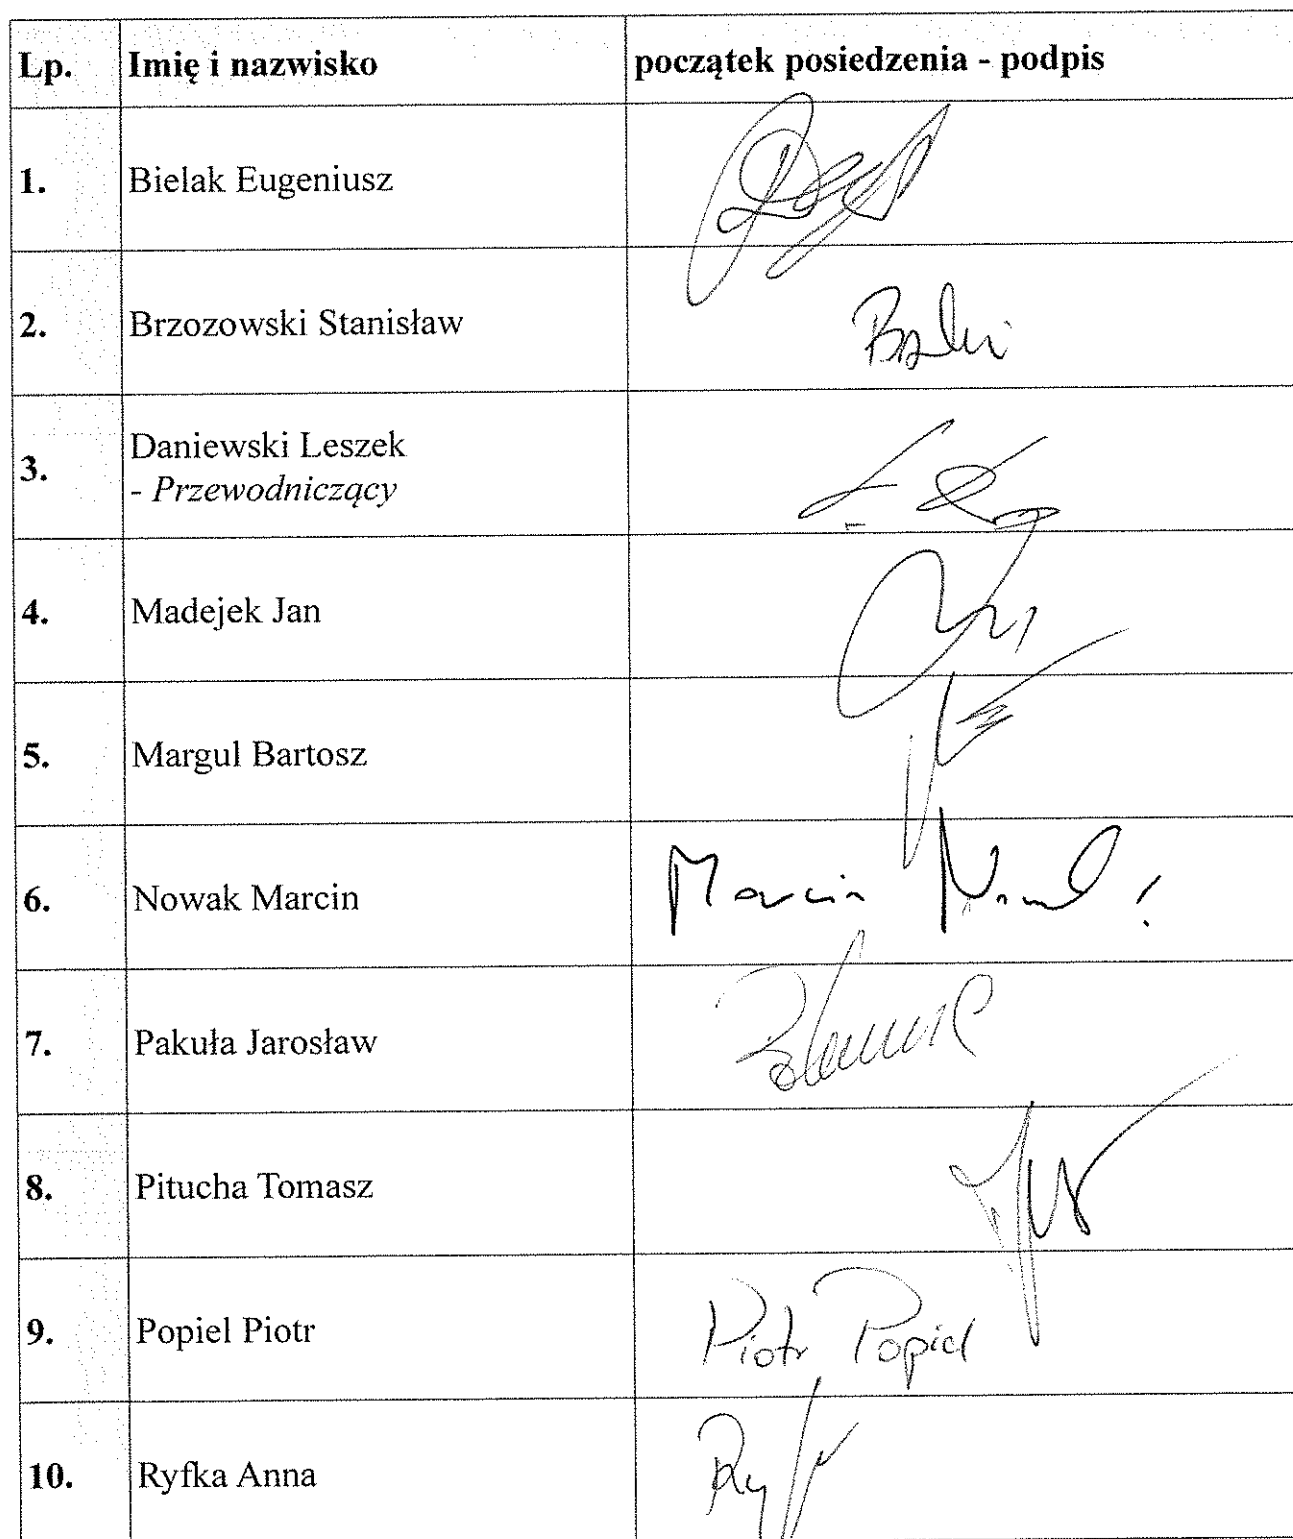 Lp. Imię i nazwisko początek posiedzenia - podpis
1. Bielak Eugeniusz
2. Brzozowski Stanisław
3. Daniewski Leszek
- Przewodniczący
4. Madejek Jan
5. Margul Bartosz
6. Nowak Marcin Marcin
7. Pakuła Jarosław
8. Pitucha Tomasz
9. Popiel Piotr Piotr Popiel
10. Ryfka Anna